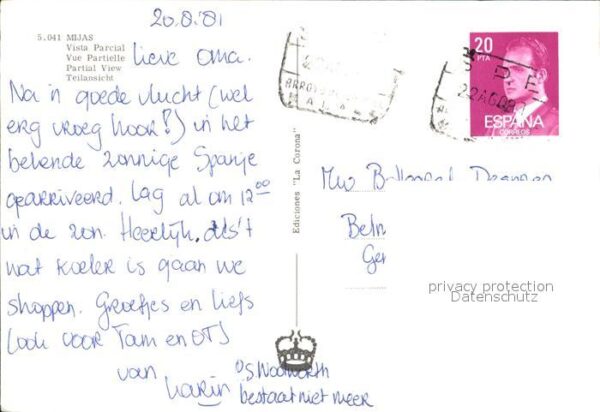 20.8.'81
5.041 MIJAS
Vista Parcial
Vue Partielle
Partial View
Teilansicht
Lieve Oma.
Na 'n goede vlucht (wel
erg vroeg hoor!) in het
bekende zonnige Spanje
gearriveerd. Lag al om 12⁰⁰
in de zon. Heerlijk. Als 't
wat koeler is gaan we
shoppen. Groetjes en liefs
(ook voor Tam en OT)
van
Karin
PS Woolworth
bestaat niet meer
Ediciones "La Corona"
20 PTA
ESPAÑA
CORREOS
MALAGA
Mw
privacy protection
Datenschutz